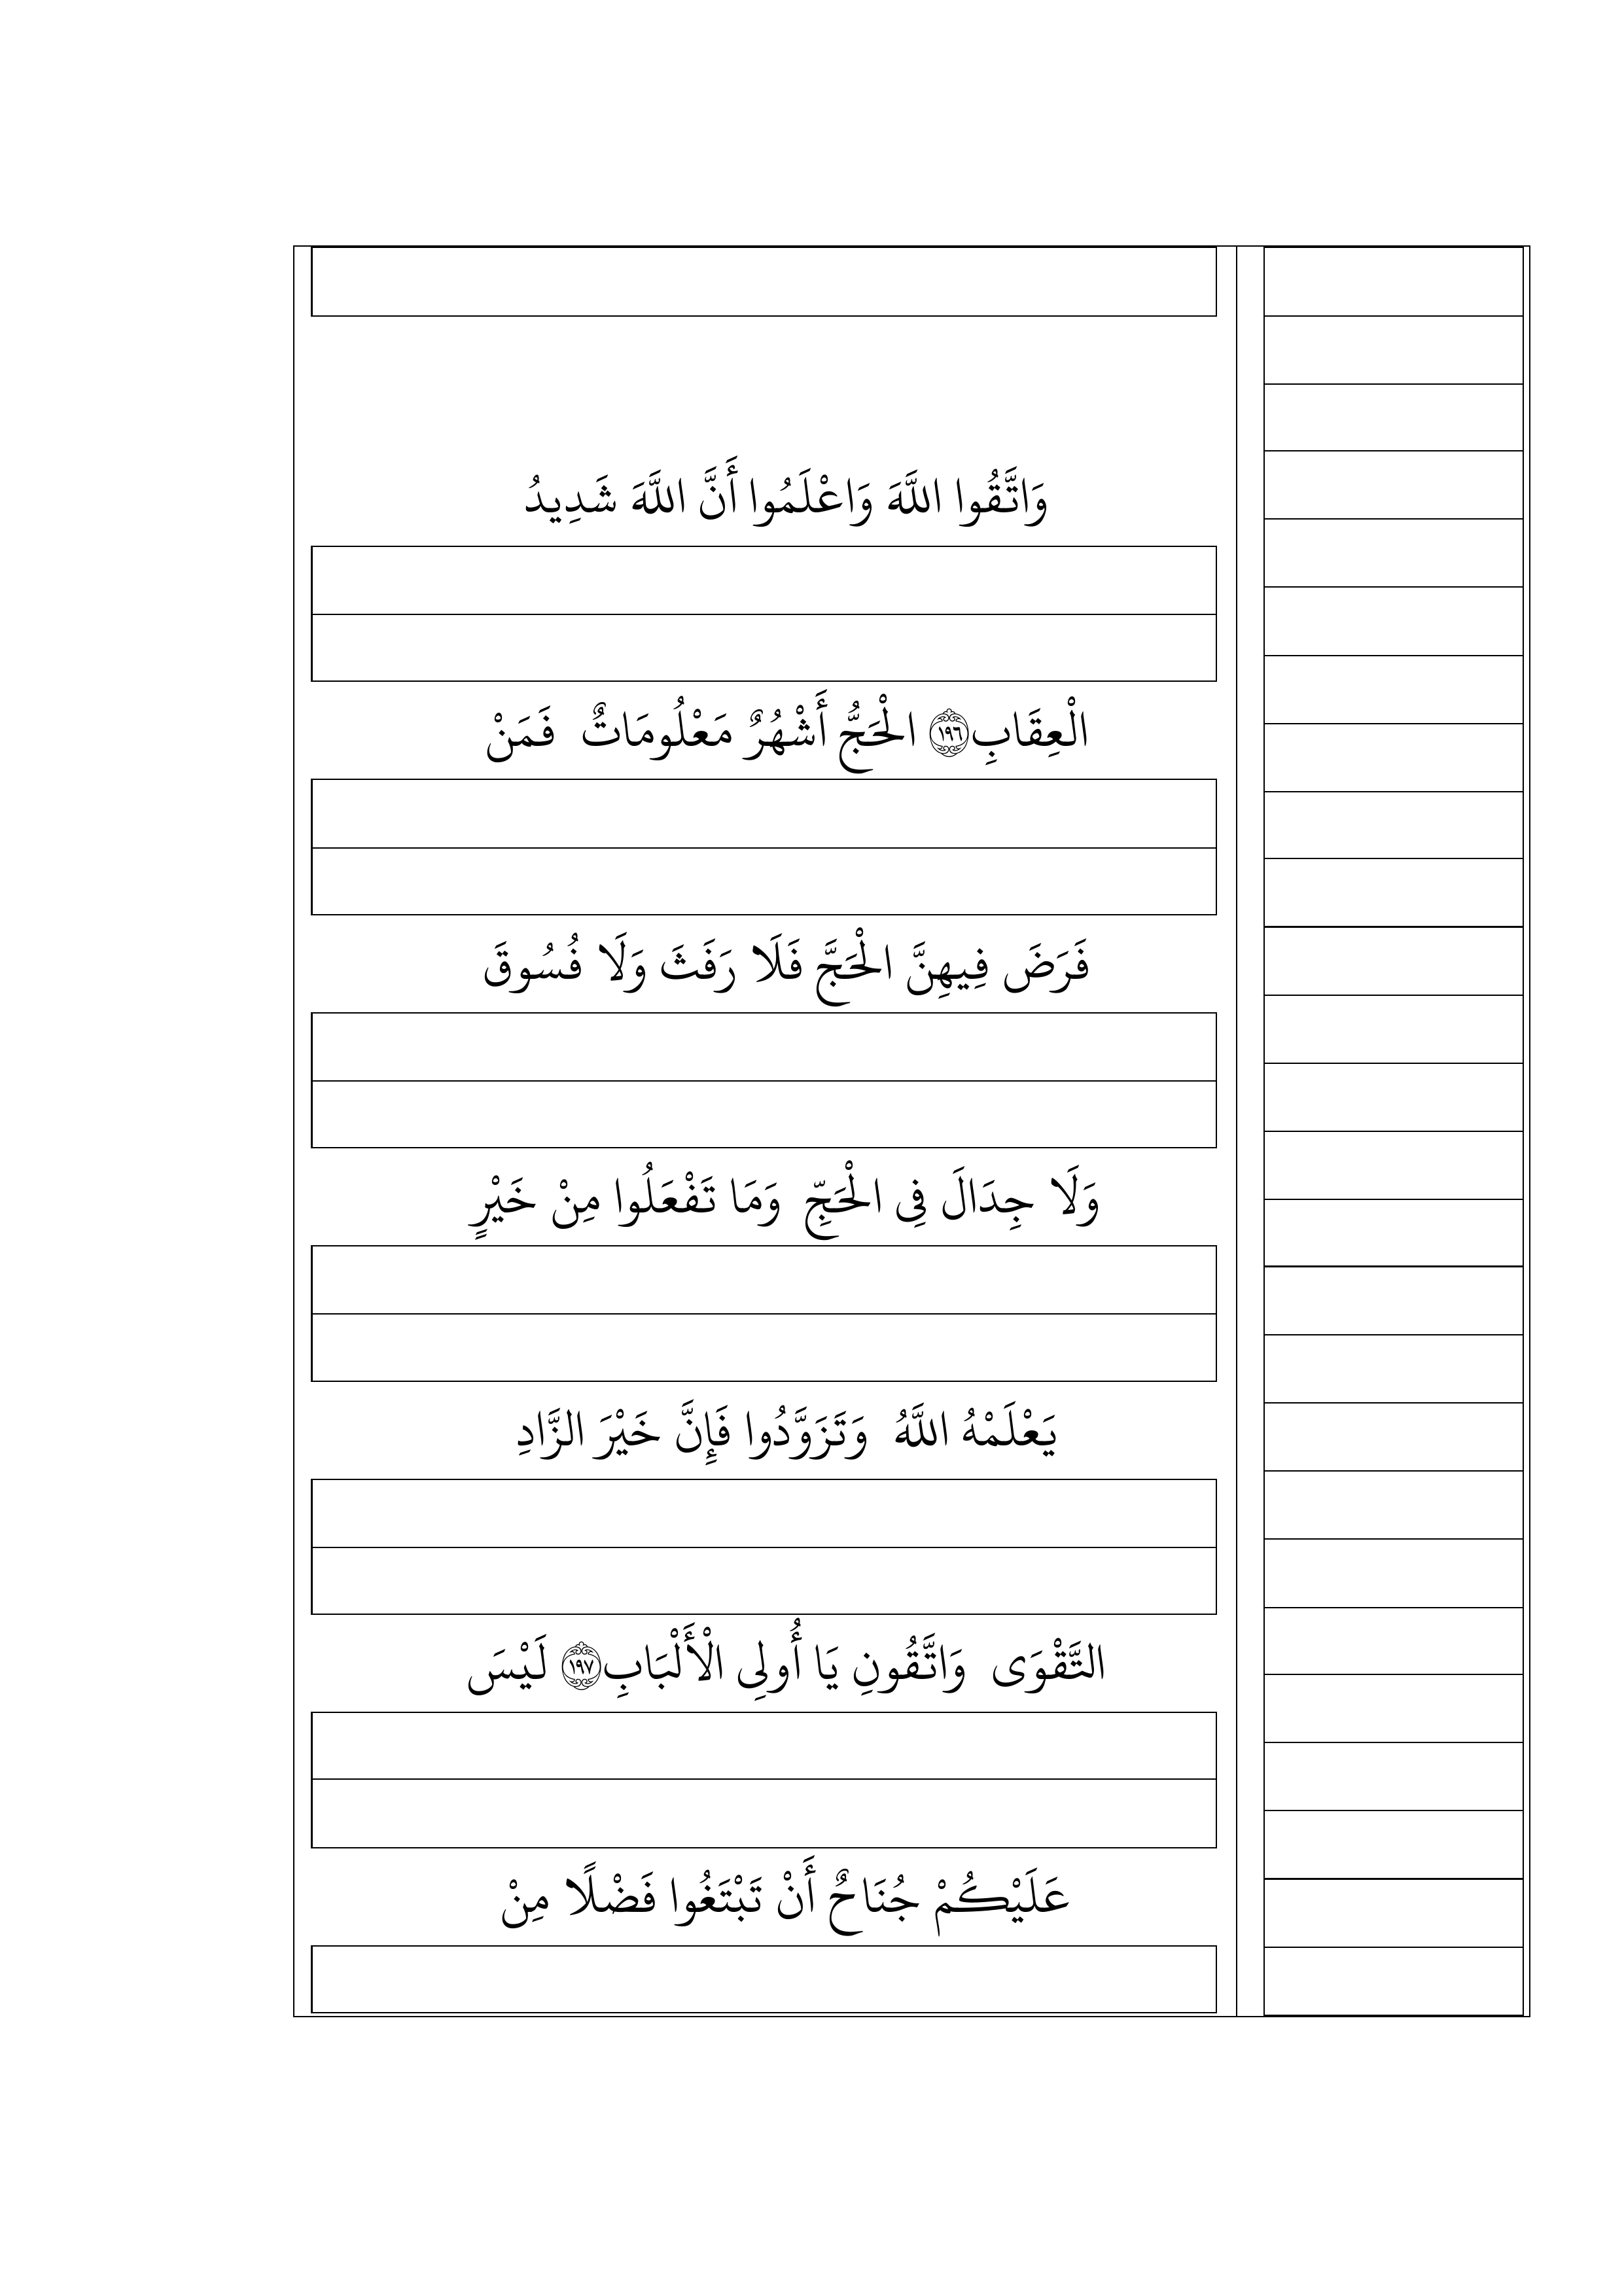 وَاتَّقُوا اللَّهَ وَاعْلَمُوا أَنَّ اللَّهَ شَدِيدُ
الْعِقَابِ ۝١٩٦ الْحَجُّ أَشْهُرٌ مَعْلُومَاتٌ فَمَنْ
فَرَضَ فِيهِنَّ الْحَجَّ فَلَا رَفَثَ وَلَا فُسُوقَ
وَلَا جِدَالَ فِى الْحَجِّ وَمَا تَفْعَلُوا مِنْ خَيْرٍ
يَعْلَمْهُ اللَّهُ وَتَزَوَّدُوا فَإِنَّ خَيْرَ الزَّادِ
التَّقْوَى وَاتَّقُونِ يَا أُولِى الْأَلْبَابِ ۝١٩٧ لَيْسَ
عَلَيْكُمْ جُنَاحٌ أَنْ تَبْتَغُوا فَضْلًا مِنْ